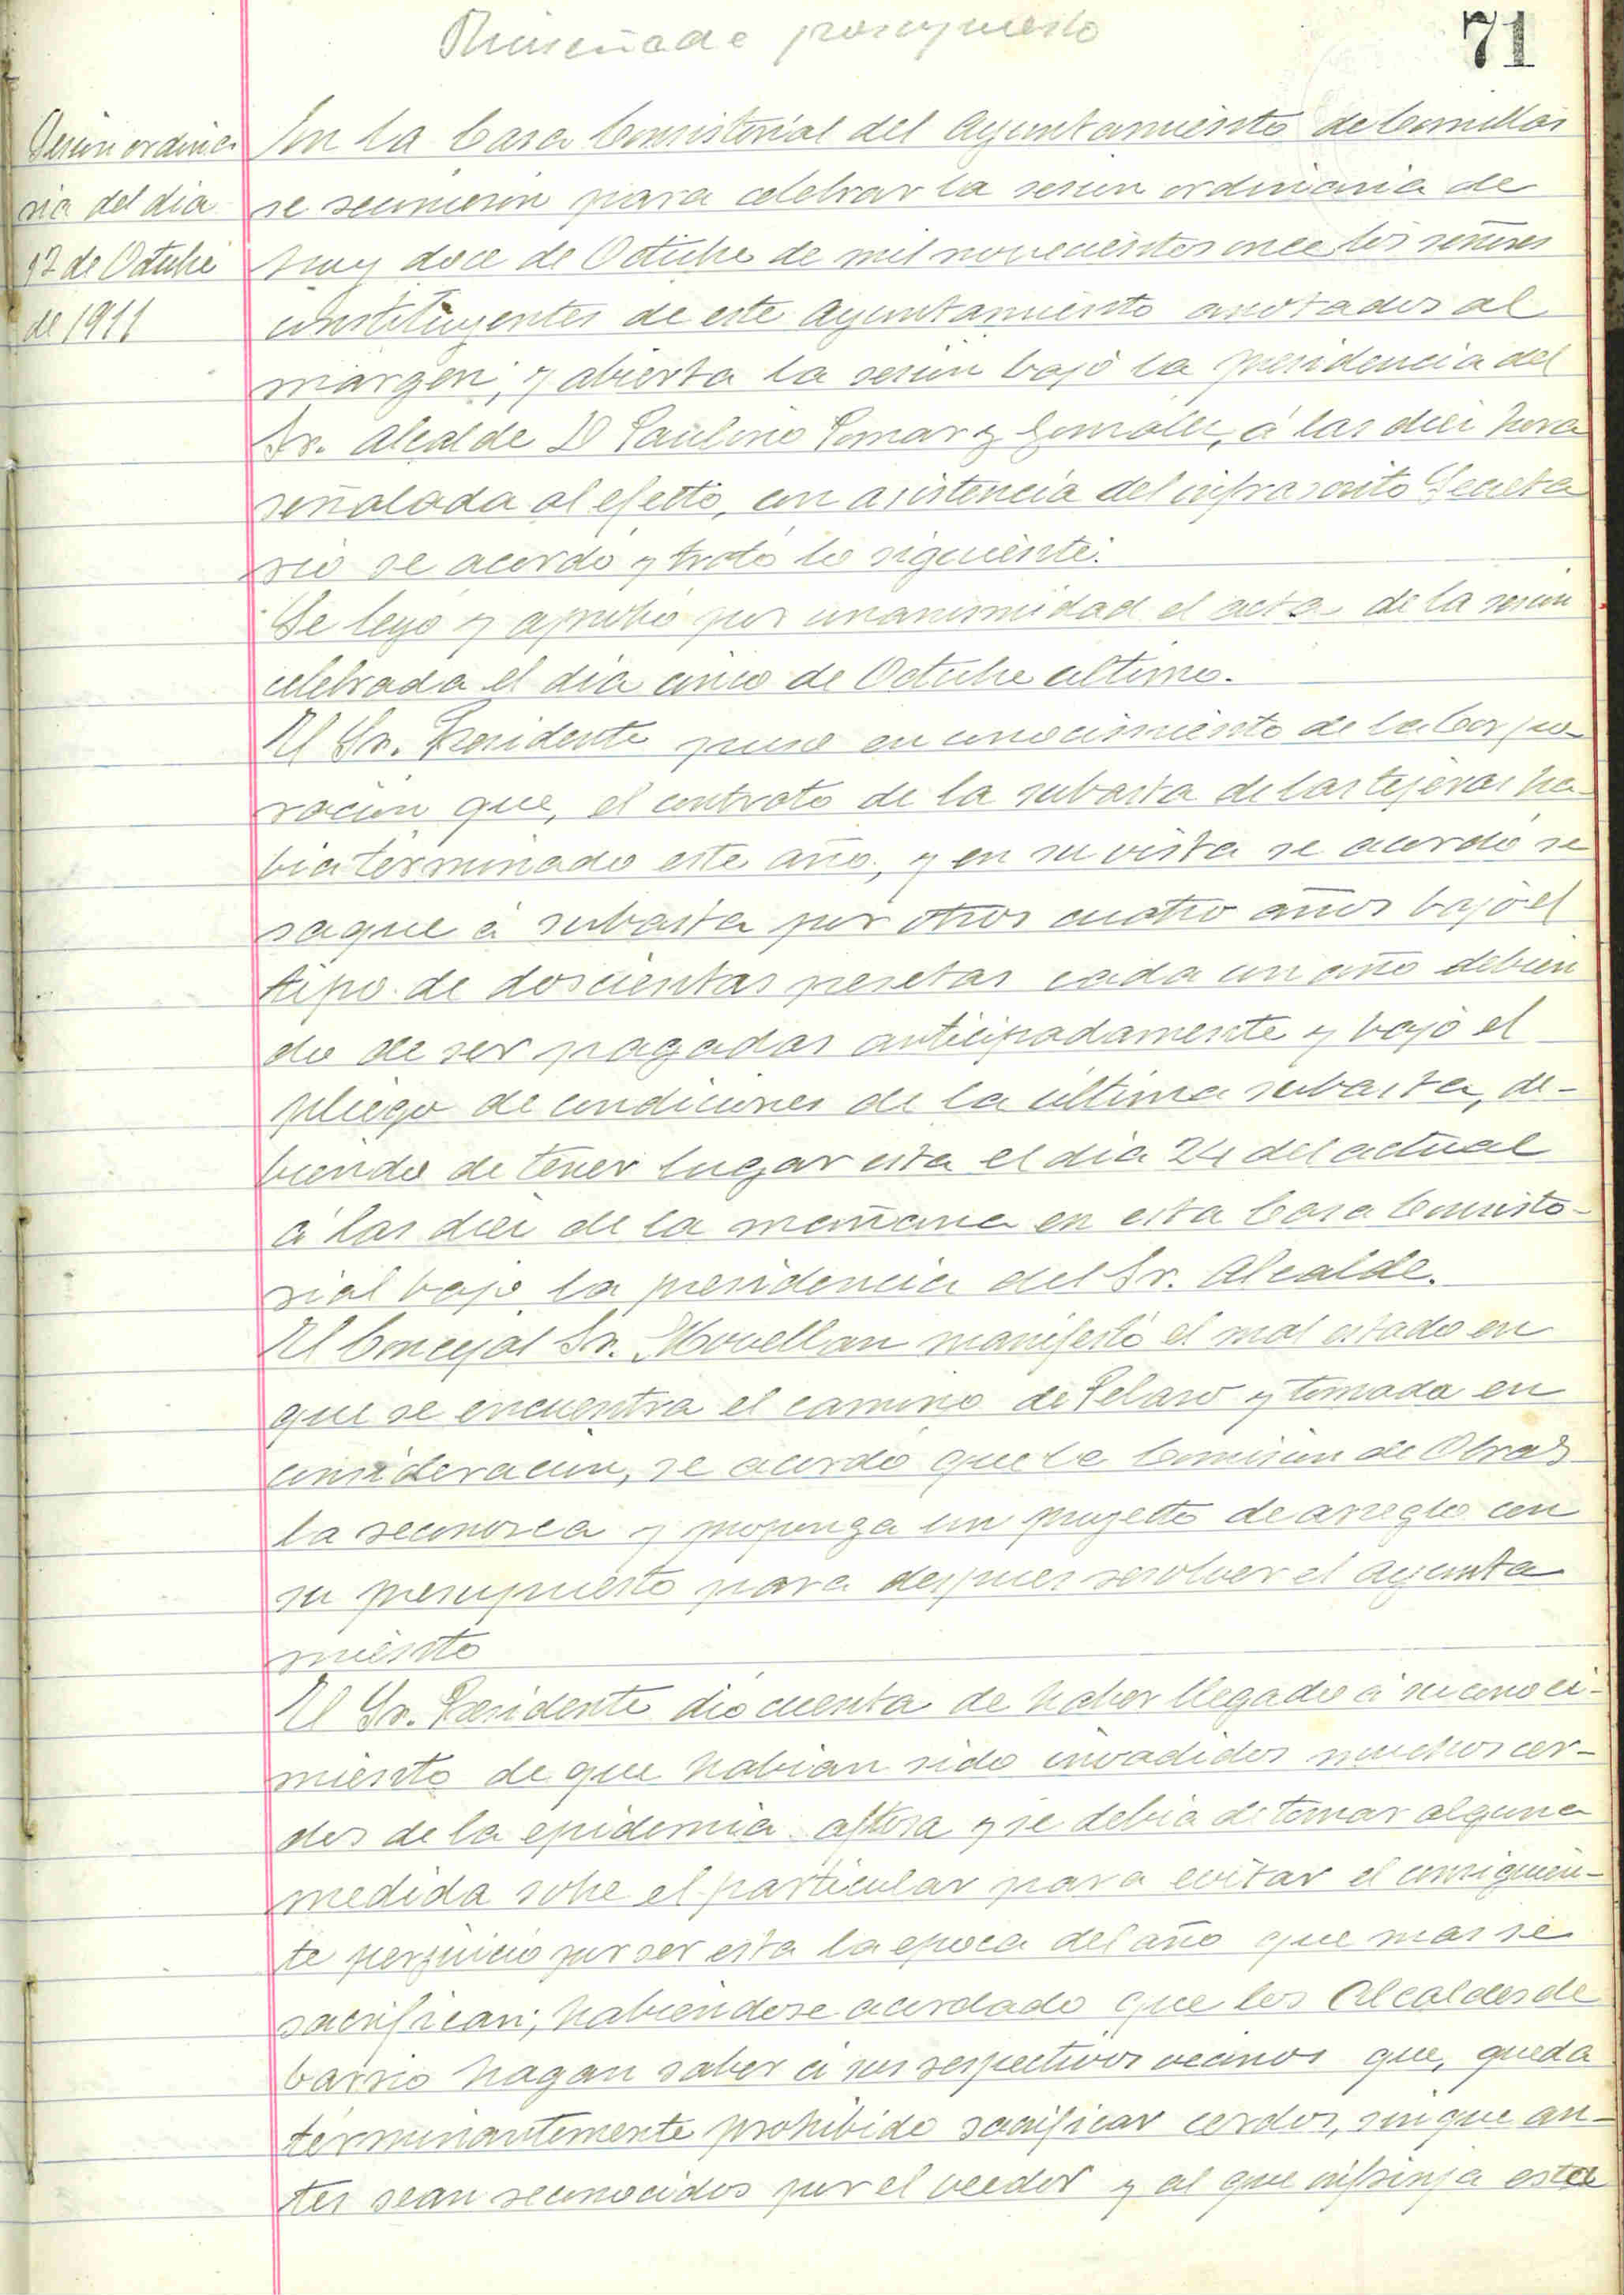 presupuesto
71
Sesion ordina
ria del dia
12 de Octubre
de 1911
En la Casa Consistorial del Ayuntamiento de Comillas
se reunieron para celebrar la sesion ordinaria de
hoy doce de Octubre de mil novecientos once los señores
constituyentes de este Ayuntamiento anotados al
margen, y abierta la sesion bajo la presidencia del
Sr. Alcalde D Paulino Pomar y Gonzalez, á las diez hora
señalada al efecto, con asistencia del infrascrito Secreta
rio se acordó y trató lo siguiente:
Se leyó y aprobó por unanimidad el acta de la sesion
celebrada el dia cinco de Octubre ultimo.
El Sr. Presidente puso en conocimiento de la Corpo-
racion que, el contrato de la subasta de las tejeras ha-
bia terminado este año, y en su vista se acordó se
saque á subasta por otros cuatro años bajo el
tipo de doscientas pesetas cada un año debien
do de ser pagadas anticipadamente y bajo el
pliego de condiciones de la última subasta, de-
biendo de tener lugar esta el dia 24 del actual
á las diez de la mañana en esta Casa Consisto-
rial bajo la presidencia del Sr. Alcalde.
El Concejal Sr. Movellan manifestó el mal estado en
que se encuentra el camino de Velaro y tomada en
consideracion, se acordó que la Comision de Obras
la reconozca y proponga un proyecto de arreglo con
su presupuesto para despues resolver el Ayunta
miento
El Sr. Presidente dió cuenta de haber llegado á su conoci-
miento de que habian sido invadidos muchos cer-
dos de la epidemia aftosa y se debia de tomar alguna
medida sobre el particular para evitar el consiguien-
te perjuicio por ser esta la epoca del año que mas se
sacrifican; habiendose acordado que los Alcaldes de
barrio hagan saber á sus respectivos vecinos que, queda
terminantemente prohibido sacrificar cerdos, sin que an-
tes sean reconocidos por el veedor y al que infrinja esta